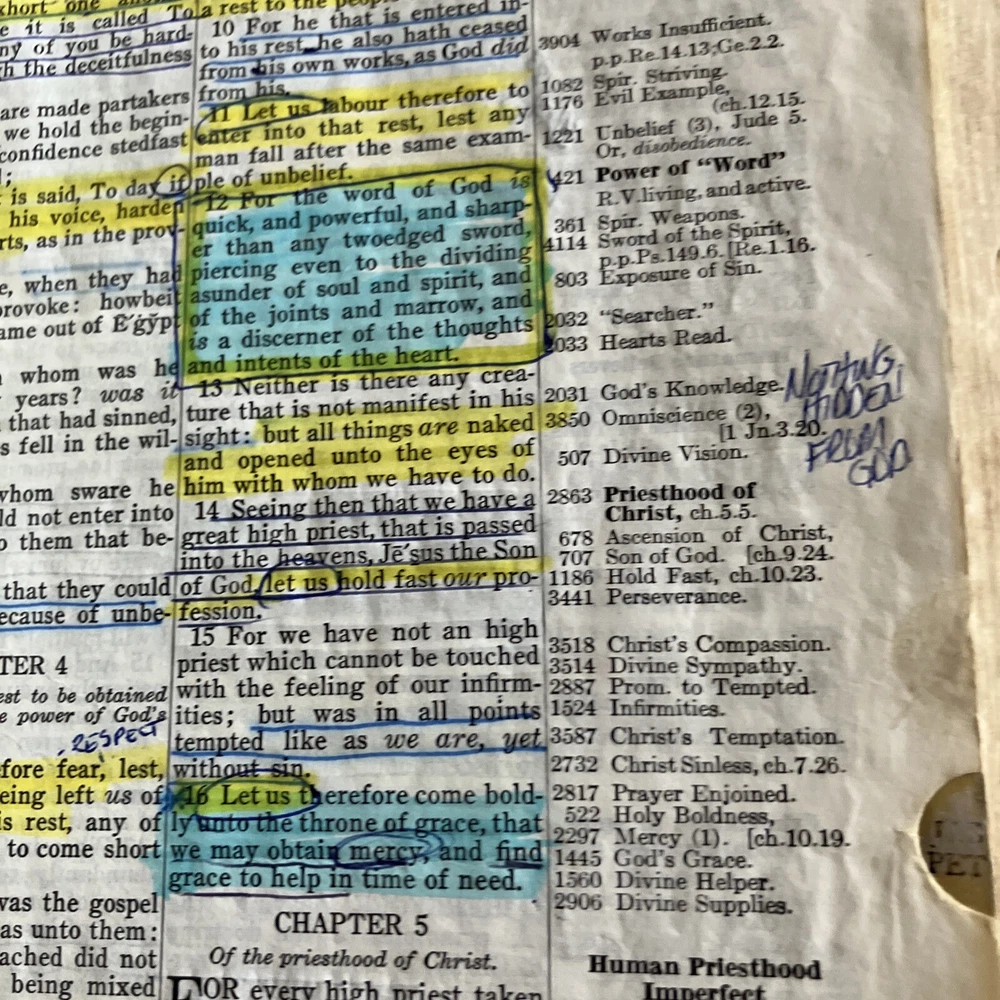 short one
e it is called To
ny of you be hard-
h the deceitfulness
are made partakers
we hold the begin-
confidence stedfast
;
is said, To day if
his voice, harden
rts, as in the prov-
e, when they had
provoke: howbeit
ame out of E'gўpt
whom was he
years? was it
that had sinned,
s fell in the wil-
whom sware he
ld not enter into
o them that be-
that they could
ecause of unbe-
TER 4
est to be obtained
e power of God's
RESPECT
fore fear, lest,
eing left us of
is rest, any of
to come short
was the gospel
as unto them:
ached did not
being mixed
a rest to the
10 For he that is entered in-
to his rest, he also hath ceased
from his own works, as God did
from his.
11 Let us labour therefore to
enter into that rest, lest any
man fall after the same exam-
ple of unbelief.
12 For the word of God is
quick, and powerful, and sharp-
er than any twoedged sword,
piercing even to the dividing
asunder of soul and spirit, and
of the joints and marrow, and
is a discerner of the thoughts
and intents of the heart.
13 Neither is there any crea-
ture that is not manifest in his
sight: but all things are naked
and opened unto the eyes of
him with whom we have to do.
14 Seeing then that we have a
great high priest, that is passed
into the heavens, Jē'sus the Son
of God, let us hold fast our pro-
fession.
15 For we have not an high
priest which cannot be touched
with the feeling of our infirm-
ities; but was in all points
tempted like as we are, yet
without sin.
16 Let us therefore come bold-
ly unto the throne of grace, that
we may obtain mercy, and find
grace to help in time of need.
CHAPTER 5
Of the priesthood of Christ.
FOR every high priest taken
3904 Works Insufficient.
p.p.Re.14.13;Ge.2.2.
1082 Spir. Striving.
1176 Evil Example,
(ch.12.15.
1221 Unbelief (3), Jude 5.
Or, disobedience.
421 Power of "Word"
R.V. living, and active.
361 Spir. Weapons.
4114 Sword of the Spirit,
p.p.Ps.149.6. [Re.1.16.
803 Exposure of Sin.
2032 "Searcher."
2033 Hearts Read.
2031 God's Knowledge.
3850 Omniscience (2),
[1 Jn.3.20.
507 Divine Vision.
NOTHING
HIDDEN
FROM
GOD
2863 Priesthood of
Christ, ch.5.5.
678 Ascension of Christ,
707 Son of God. [ch.9.24.
1186 Hold Fast, ch.10.23.
3441 Perseverance.
3518 Christ's Compassion.
3514 Divine Sympathy.
2887 Prom. to Tempted.
1524 Infirmities.
3587 Christ's Temptation.
2732 Christ Sinless, ch.7.26.
2817 Prayer Enjoined.
522 Holy Boldness,
2297 Mercy (1). [ch.10.19.
1445 God's Grace.
1560 Divine Helper.
2906 Divine Supplies.
Human Priesthood
Imperfect
PET